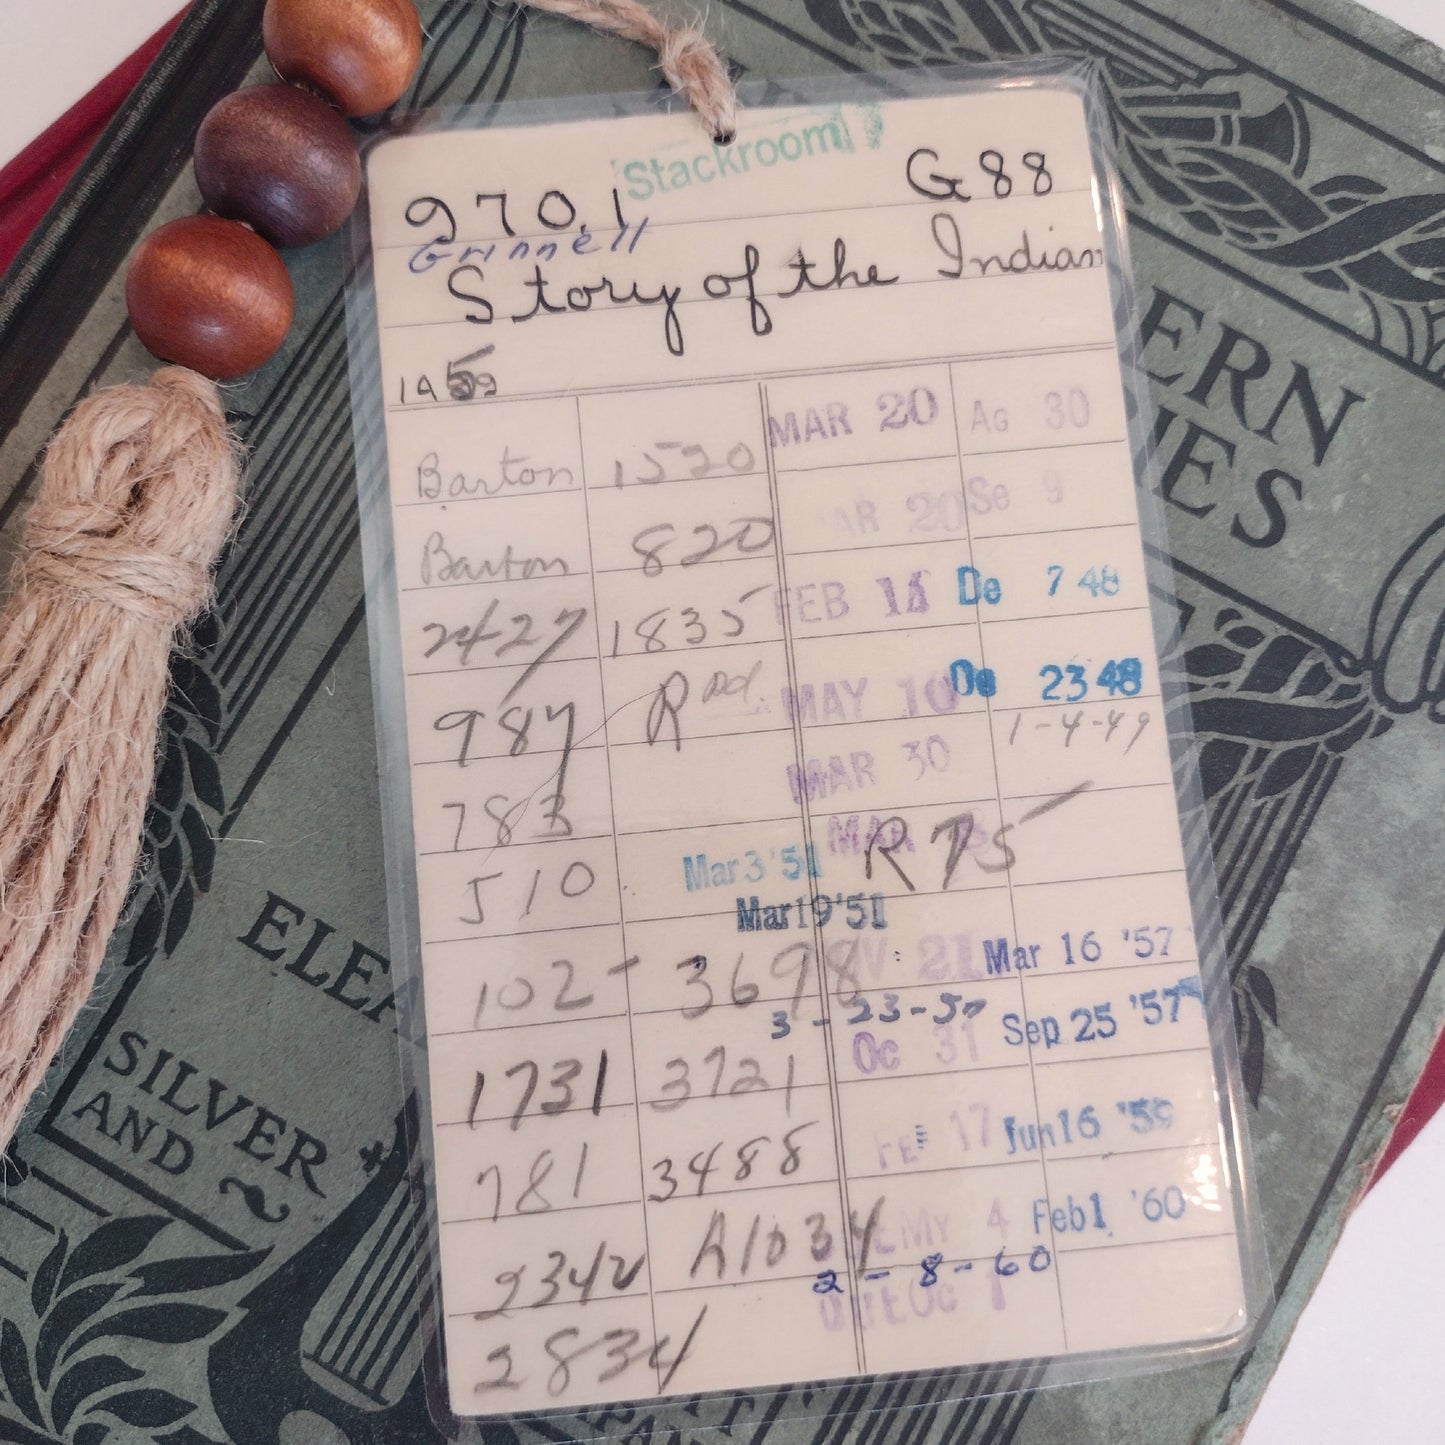 Stackroom
970.1 G88
Grinnell
Story of the Indian
Barton 1520 MAR 20 Ag 30
Barton 820 AR 20 Se 9
2427 1835 FEB De 7 48
987 Rnd. MAY 10 De 23 48
MAR 30 1-4-49
783 MAR R 75
510 Mar 3 '51
Mar 19 '51
102 3698 V 21 Mar 16 '57
3-23-57
1731 3721 Oc 31 Sep 25 '57
781 3488 FE 17 Jun 16 '59
2342 A1034 My 4 Feb 1 '60
2-8-60
2834 Oc 1
ERN
IES
ELEA
SILVER
AND